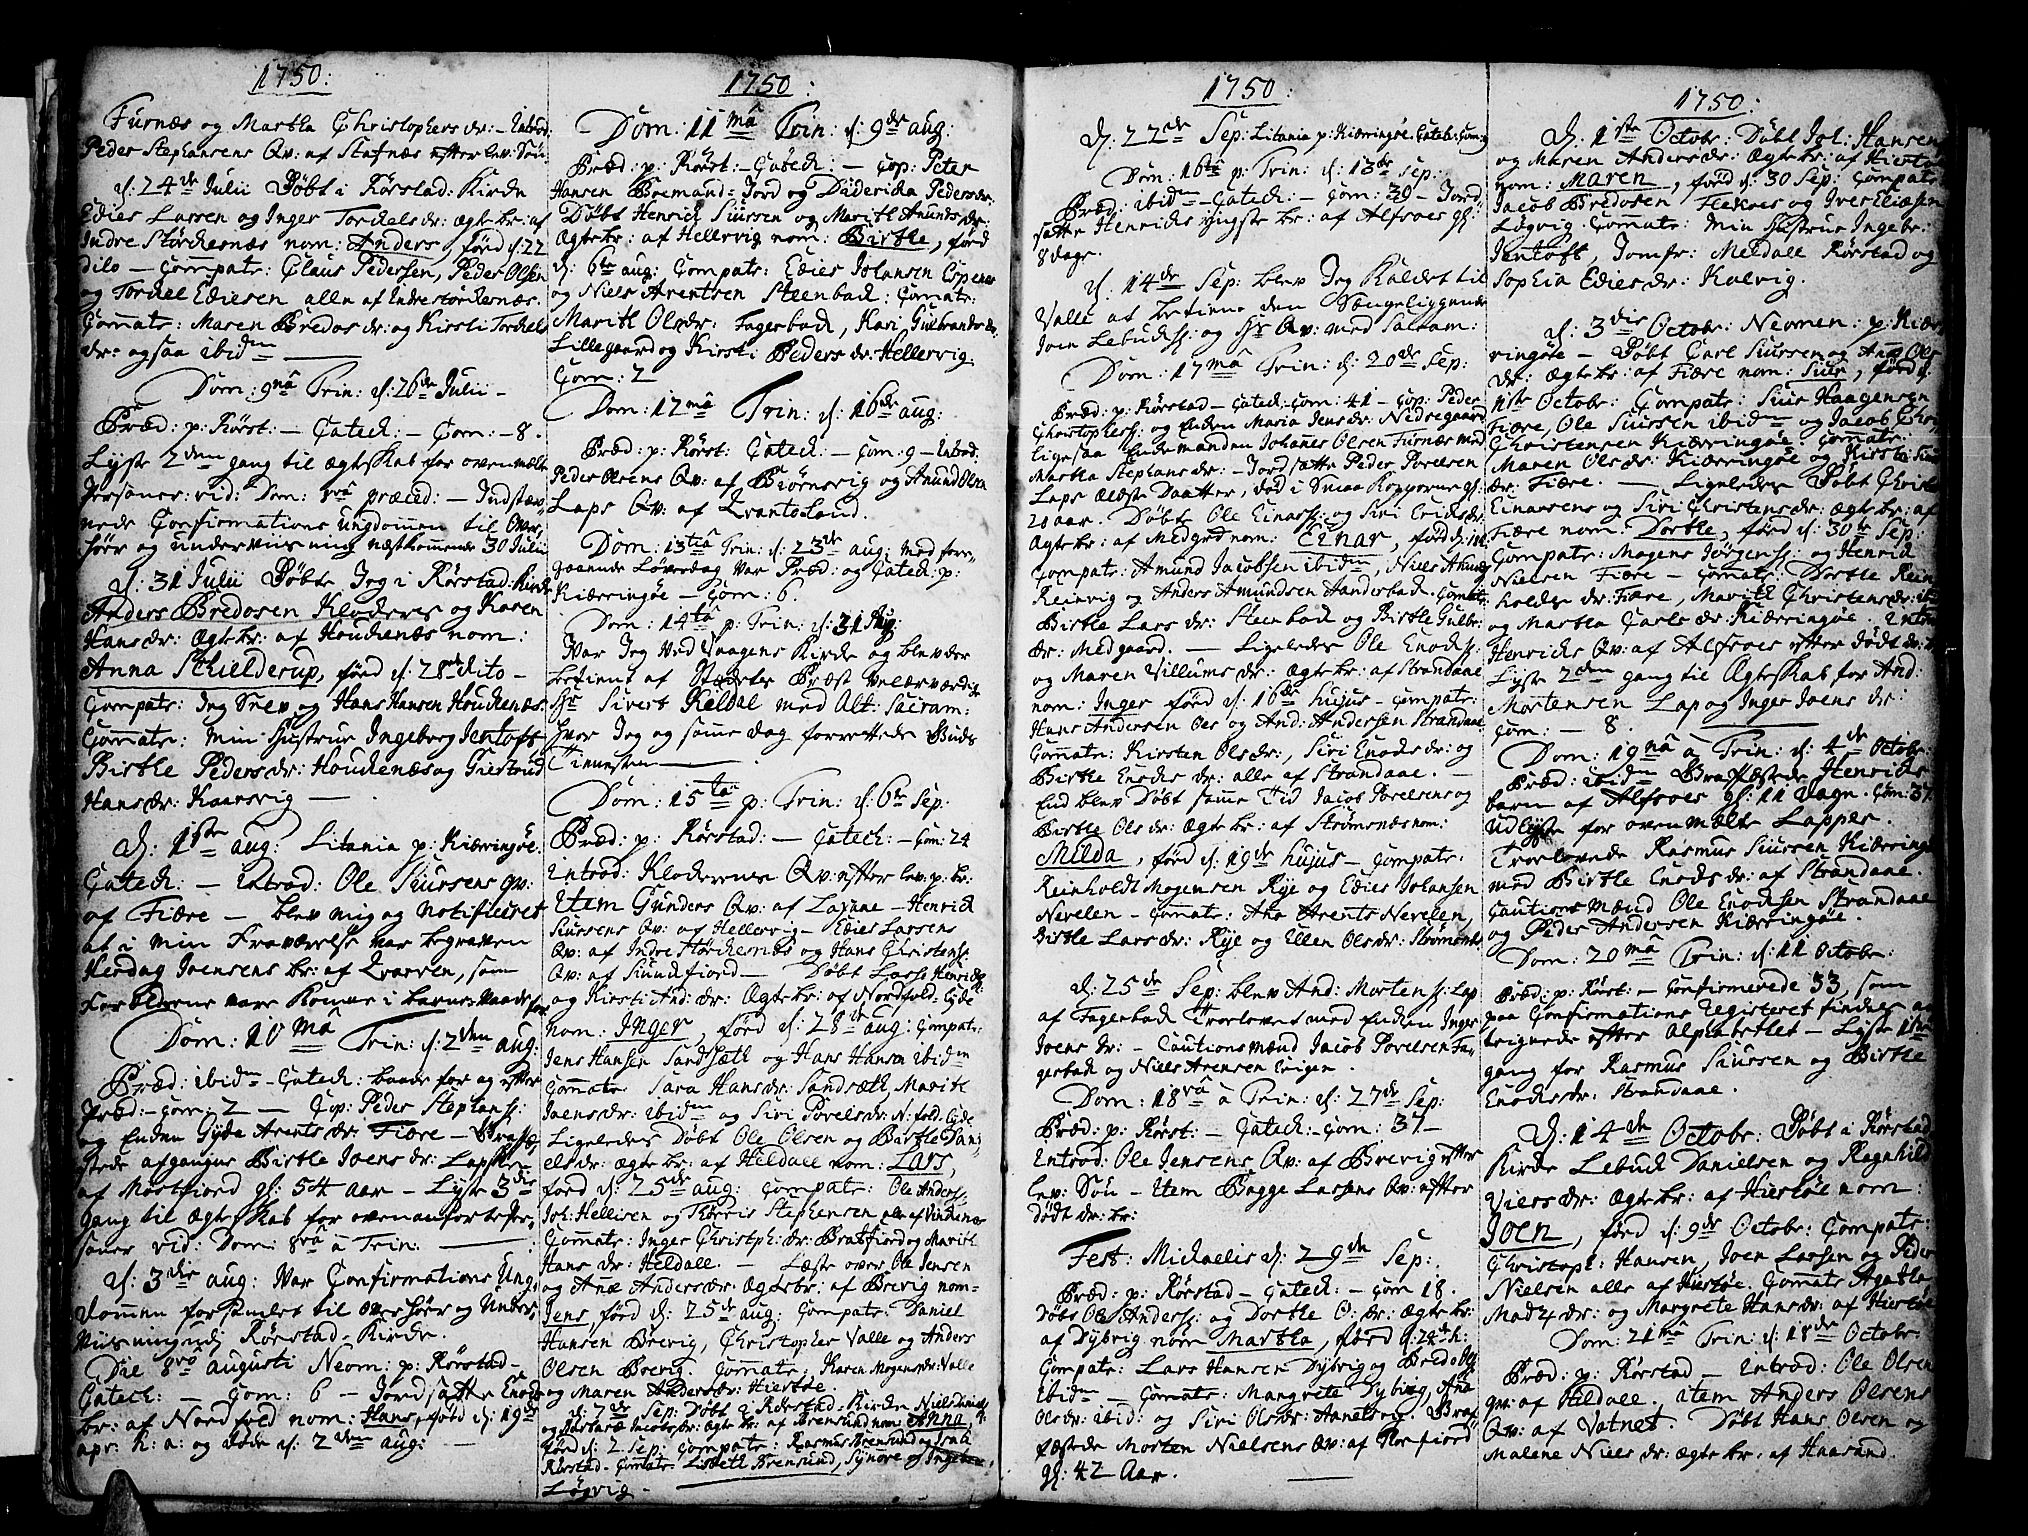 1750:
Furnæs og Martha Christophers dr: - Introd:
Peder Stephansens Qv: af Stafnæs efter lev: Søn
d: 24de Julii Døbt i Rørstad: Kirke
Edies Larsen og Inger Torchels dr: Ægte br: af
Indre Størchernæs nom: Anders, fød d: 22
dito - Compatr: Claus Pedersen, Peder Olsen
og Torchel Ediesen alle af Indrestørchernæs.
Commatr: Maren Bredos dr: og Kirsti Torchels
dr: ogsaa ibidm
Dom: 9nâ Trin: d: 26de Julii -
Præd: p: Rørst: - Catech: - Com: - 8.
Lyste 2den gang til Ægteskab for ovenmælte
Personer: vid: Dom: 8vâ præced: - Indstæv-
nede Confirmations Ungdommen til Over-
høer og underviisning næstkommende 30 Julii
d: 31 Julii Døbte Jeg i Rørstad: Kirke
Anders Bredosen Klocheres og Karen
Hans dr: Ægte br: af Houchenæs nom:
Anna Schielderup, fød d: 28de dito -
Compatr: Jeg Selv og Hans Hansen Houchenæs
Commatr: Min Hustrue Ingeborg Jentoft
Birthe Peders dr: Houchenæs og Giertrud
Hans dr: Kaarsvig -
d: 1ste aug: Litania p: Kierringøe
Catech: - Introd: Ole Siursens Qv:
af Fiære - blev mig og Notificeret
at i min Fraværelse var begraven
Herdag Joensens br: af Qvarven, som
Forældrene vare komne i barnes vaade for
Dom: 10mâ Trin: d: 2den aug:
Præd: ibidm - Catech: baade for og efter
Præd: - Com: 2 - Cop: Peder Stephans:
og Enken Gyde Arents dr: Fiære - Bræffæ-
stede afgangne Birthe Joens dr: Lapske
af Mostfiord gl: 54 aar - Lyste 3die
gang til Ægteskab for ovenanførte Per-
soner vid: Dom: 8vâ â Trin:
d: 3die aug: Var Confirmations Ung-
dommen forsamlet til Overhøer og Under-
viisning udj Rørstad-Kirke.
Die 8vo augusti Neom: p: Rørstad -
Catech: - Com: 6 - Jordsatte Enochs
br: af Nordfold nom: Hans, fød d: 19de
apr: h: a: og døde d: 2den aug: -
1750:
Dom: 11mâ Trin: d: 9de aug:
Præd: p: Rørst: - Catech: - Cop: Peter
Hansen Boemand: Jord og Diderica Peders dr:
Døbt Henrich Siursen og Marith Anunds dr:
Ægte br: af Hellervig nom: Birthe, fød
d: 6te aug: Compatr: Edies Johansen Espenes
og Niels Arentsen Steenbach: Commatr:
Marith Ols dr: Fagerbach, Kari Gulbrands dr:
Lillegaard og Kirsti Peders dr: Hellervig
Com: 2
Dom: 12mâ Trin: d: 16de aug:
Præd: p: Rørst: Catech: - Com: 9 - Introd:
Peder Olsens Qv: af Biørnsvig og Anund Olsen
Laps Qv: af Qvantoland.
Dom: 13tiâ Trin: d: 23de aug: Med fore-
gaaende Løverdag var Præd: og Catech: p:
Kierringøe - Com: 6.
Dom: 14tâ p: Trin: d: 31 Aug:
Var Jeg ved Vaagens Kirke og blev der
betient af Stædets Præst Velærværdige
Hr: Sivert Keldal med Alt: Sacram:
hvor Jeg og same dag forrettede Guds
Tienesten
Dom: 15tâ p: Trin: d: 6te Sep:
Præd: p: Rørstad: - Catech: - Com: 24
Introd: Klocherens Qv: efter lev: p: br:
Item Gunders Qv: af Laxaae - Henrich
Siursens Qv: af Hellervig - Edies Larsens
Qv: af Indre Størchernæs og Hans Christens:
Qv: af Siundfiord - Døbt Lars Henrichs:
og Kirsti And: dr: Ægte br: af Nordfold: Gyde
nom: Inger, fød d: 28de aug: Compatr:
Jens Hansen Sandsæth og Hans Hansen ibidm
Commatr: Sara Hans dr: Sandsæth, Marith
Joens dr: ibidm og Siri Povels dr: N: fold: Gyde
Ligeledes Døbt Ole Olsen og Birthe Dani-
els dr: Ægte br: af Heldall nom: Lars,
fød d: 25de aug: Compatr: Ole Anders:
Joh: Hellisen og Thorris Stephensen alle af Vindenæs
Commatr: Inger Christoph: dr: Bratfiord og Marith
Hans dr: Heldall. - Læste over Ole Jensen
og Anæ Anders dr: Ægte br: af Brevig nom:
Jens, fød d: 25de aug: Compatr: Daniel
Hansen Brevig, Christopher Valle og Anders
Olsen Brevig. Commatr: Karen Mogens dr: Valle
og Maren Anders dr: Hiertøe
d: 7de Sep: Døbt i Rørstad-Kirke Niels Daniels:
og Barbara Jacobs dr: Ægte br: af Brensund nom: Anna
fød d: 2 Sep: Compatr: Rasmus Brensund og Isach
Rørstad - Commatr: Lisbeth Brensund, Synore og Ingebor
Løgvig -
1750:
d: 22de Sep: Litania p: Kierringøe Catech: Com:
Dom: 16tâ p: Trin: d: 13de Sep:
Præd: ibidm - Catech: - Com: 39 - Jord-
satte Henrichs yngste br: af Alfsoes gl:
8 dage.
d: 14de Sep: blev Jeg Kaldet til
Valle at betiene den Sængeliggende
Joen Lebuchs: og Hs Qv: med Sacram:
Dom: 17mâ Trin: d: 20de Sep:
Præd: p: Rørstad - Catech: Com: 41 - Cop: Peder
Christophers: og Enken Maria Jens dr: Nedregaard
Ligesaa Enkemanden Johannes Olsen Furnæs med
Martha Stephens dr: - Jordsatte Peder Povelsen
Laps ælste Daatter, død i Smaa Kopperne gl:
20 aar. Døbt Ole Einars: og Siri Erichs dr:
Ægte br: af Medgrd nom: Einar, fød d: 1ste
Compatr: Amund Jacobsen ibidm, Niels Amunds:
Reinvig og Anders Amundsen Handerbach. Commatr:
Birthe Lars dr: Steenbach og Birthe Gulbr:
dr: Medgaard. - Ligeledes Ole Enochs:
og Maren Villums dr: Ægte br: af Strandaae
nom: Inger fød d: 16de hujus - Compatr:
Hans Andersen Oes og And: Andersen Strandaae
Commatr: Kirsten Ols dr:, Siri Enochs dr: og
Birthe Enochs dr: alle af Strandaae. -
End blev Døbt samme tid Jacob Povelsens og
Birthe Ols dr: Ægte br: af Strømsnæs nom:
Milda, fød d: 19de hujus - Compatr:
Reinholdt Mogensen Rye og Edies Johansen
Nevelen - Commatr: Ane Arents Nevelen,
Birthe Lars dr: Rye og Ellen Ols dr: Strømsnæs
d: 25de Sep: blev And: Mortens: Lap
af Fagerbach Trolovet med Enken Inger
Joens dr: - Cautions Mænd Jacob Povelsen Fa-
gerbach og Niels Arensen Evigen.
Dom: 18vâ â Trin: d: 27de Sep:
Præd: p: Rørst: - Catech: - Com: 37 -
Introd: Ole Jensens Qv: af Brevig efter
lev: Søn - Item Bagge Larsens Qv: efter
dødt dr: br:
Fest: Michaelis d: 29de Sep:
Præd: p: Rørstad - Catech: - Com 18.
Døbt Ole Anders: og Dorthe O: dr: Ægte br:
af Dybvig nom: Martha, fød d: 24de h:
Compatr: Lars Hansen Dybvig og Bredo Ols:
ibidm - Commatr: Mangrete Dybvig, Ana
Ols dr: ibid: og Siri Ols dr: Hanelsøe. Bræf-
fæstede Morten Nielsens Qv: af Rorfiord
gl: 42 Aar.
1750:
d: 1ste Octobr: Døbt Joh: Hansen
og Maren Anders dr: Ægte br: af Hiertøe
nom: Maren, fød d: 30 Sep: Compatr:
Jacob Bredosen Flekoes og Iver Eliæsen
Løgvig: Commatr: Min Hustrue Ingebr:
Jentoft, Jomfr: Meldall Rørstad og
Sophia Edies dr: Kalvig.
d: 3die Octobr: Neomen: p: Kier-
ringøe - Døbt Carl Siursen og Anæ Ols
dr: Ægte br: af Fiære nom: Siur, fød d:
1ste Octobr: Compatr: Siur Haagensen
Fiære, Ole Siursen ibidm og Jacob Chri-
Christensen Kierringøe Commatr:
Maren Ols dr: Kierringøe og Kirsti Siurs
dr: Fiære. - Ligeledes Døbt Christen
Einarsens og Siri Christens dr: Ægte br: af
Fiære nom: Dorthe, fød d: 30te Sep:
Compatr: Mogens Jørgens: og Henrich
Nielsen Fiære - Commatr: Dorthe Rein-
holds dr: Fiære, Marith Christens dr: ibm
og Martha Carls dr: Kierringøe. Introd:
Henrichs Qv: af Alfsoes efter dødt dr: br:
Lyste 2den gang til Ægteskab for And:
Mortensen Lap og Inger Joens dr:
Com: - 8.
Dom: 19nâ â Trin: d: 4de Octobr:
Præd: ibidm Bræffæstede Henrichs
barn af Alfsoes gl: 11 dage. Com: 37
Udlyste for ovenmælte Lapper.
Trolovede Rasmus Siursen Kierringøe
med Birthe Enochs dr: af Strandaae.
Cautions Mænd Ole Enochsen Strandaae
og Peder Andersen Kierringøe.
Dom: 20mâ Trin: d: 11 Octobr:
Præd: p: Rørst: - Confirmerede 33, som
paa Confirmations Registeret findes an-
tegnede efter Alphabethet - Lyste 1ste
gang for Rasmus Siursen og Birthe
Enochs dr: Strandaae.
d: 14de Octobr: Døbt i Rørstad
Kirke Lebuch Danielsen og Regnhild
Viers dr: Ægte br: af Hiertøe nom:
Joen, fød d: 9de Octobr: Compatr:
Christoph: Hansen, Joen Larsen og Peder
Nielsen alle af Hiertøe. Commatr: Agathe
Madz dr: og Margrete Hans dr: af Hiertøe
Dom: 21mâ Trin: d: 18de Octobr:
Præd: p: Rørstad - Introd: Ole Olsen
Qv: af Heldall, item Anders Olsens
Qv: af Vatnet. Døbt Hans Olsen og
Malene Niels dr: Ægte br: af Haasund.